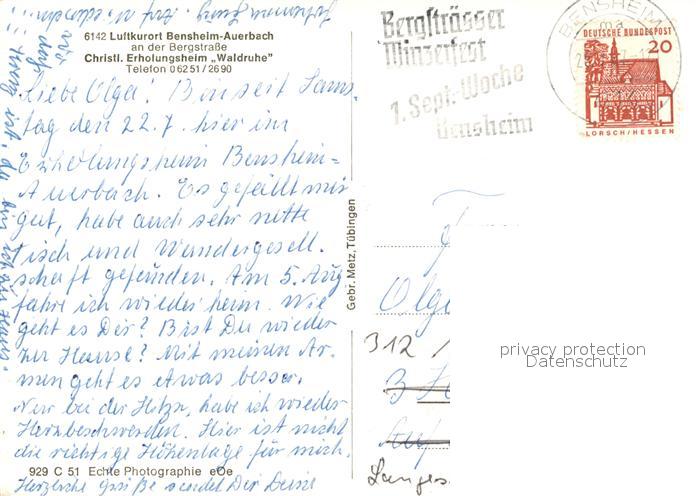 6142 Luftkurort Bensheim-Auerbach
an der Bergstraße
Christl. Erholungsheim „Waldruhe"
Telefon 06251/2690
Liebe Olga! Bin seit Sams-
tag den 22.7. hier im
Erholungsheim Bensheim-
Auerbach. Es gefällt mir
gut, habe auch sehr nette
Tisch und Wandergesell-
schaft gefunden. Am 5. Aug
fahre ich wieder heim. Wie
geht es Dir? Bist Du wieder
zur Hause? Mit meinen Ar-
men geht es etwas besser.
Nur bei der Hitze, habe ich wieder
Herzbeschwerden. Hier ist nicht
die richtige Höhenlage für mich.
929 C 51 Echte Photographie
Herzliche Grüße sendet Dir Deine
Gebr. Metz, Tübingen
Bergsträsser
Winzerfest
1. Sept.-Woche
Bensheim
BENSHEIM
DEUTSCHE BUNDESPOST
20
LORSCH/HESSEN
Olga
312
3
Auf
Langes
privacy protection
Datenschutz